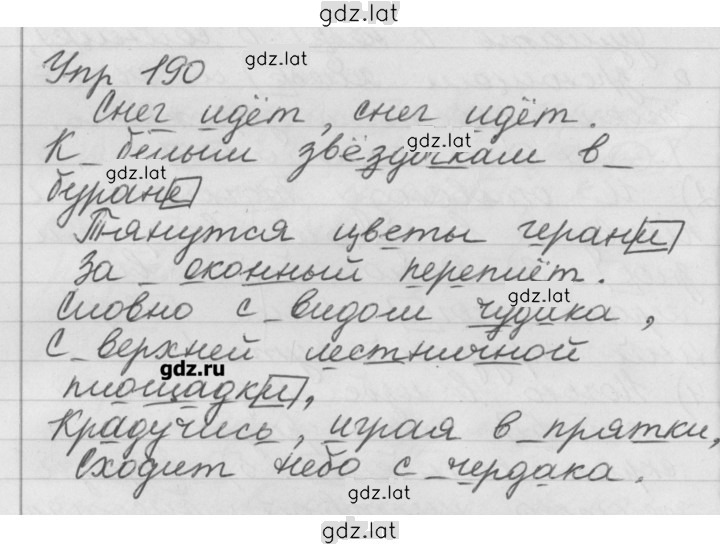 gdz.lat
gdz.lat
Упр 190
Снег идёт, снег идёт.
gdz.lat
К белым звёздочкам в
gdz.lat
буране
Тянутся цветы герани
За оконный переплёт.
gdz.lat
Словно с видом чудика,
С верхней лестничной
gdz.ru
площадки,
Крадучись, играя в прятки,
Сходит небо с чердака.
gdz.lat
gdz.lat